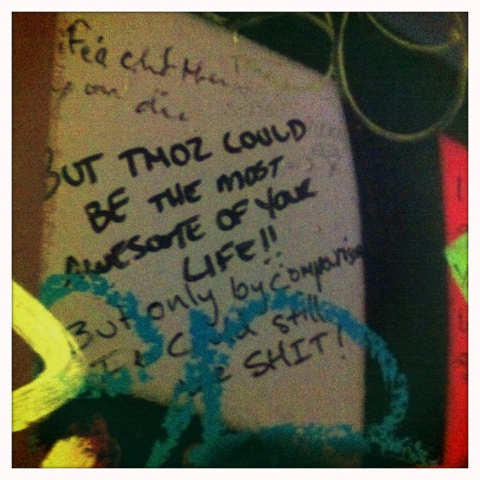 you die
BUT TMOZ COULD
BE THE MOST
AWESOME OF YOUR
LIFE!!
But only by comparison
It could still
be SHIT!